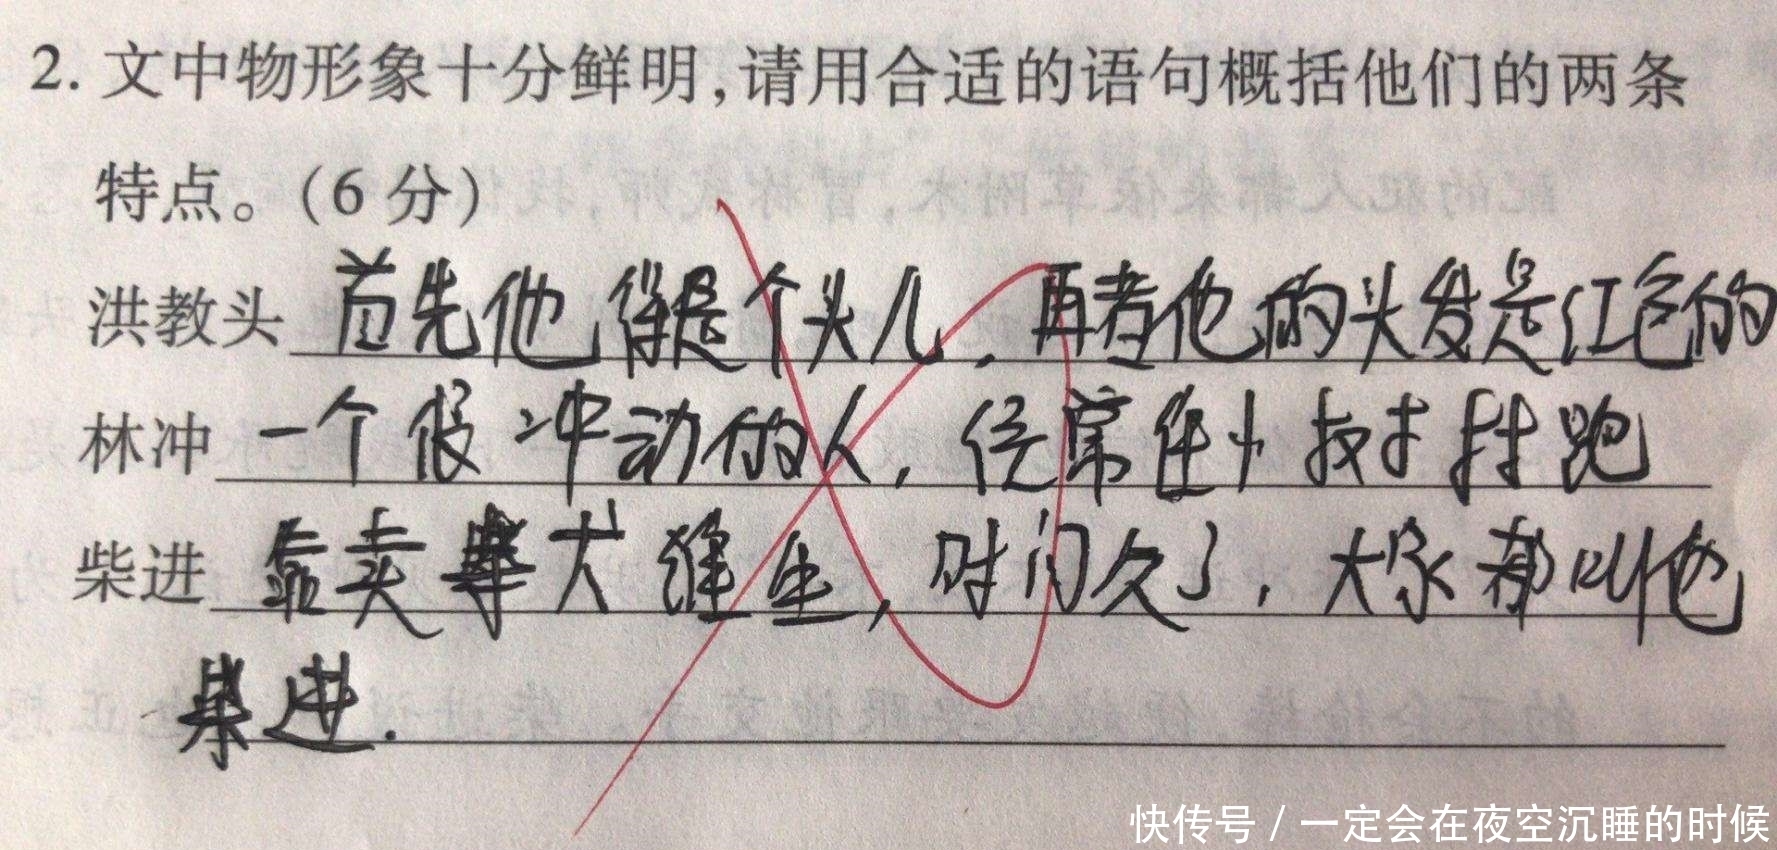 2. 文中物形象十分鲜明,请用合适的语句概括他们的两条
特点。(6 分)
洪教头 首先他得是个头儿，再者他的头发是红色的
林冲 一个很冲动的人，经常往小树林跑
柴进 靠卖拳大维生，时间久了，大家都叫他
柴进.
快传号 / 一定会在夜空沉睡的时候